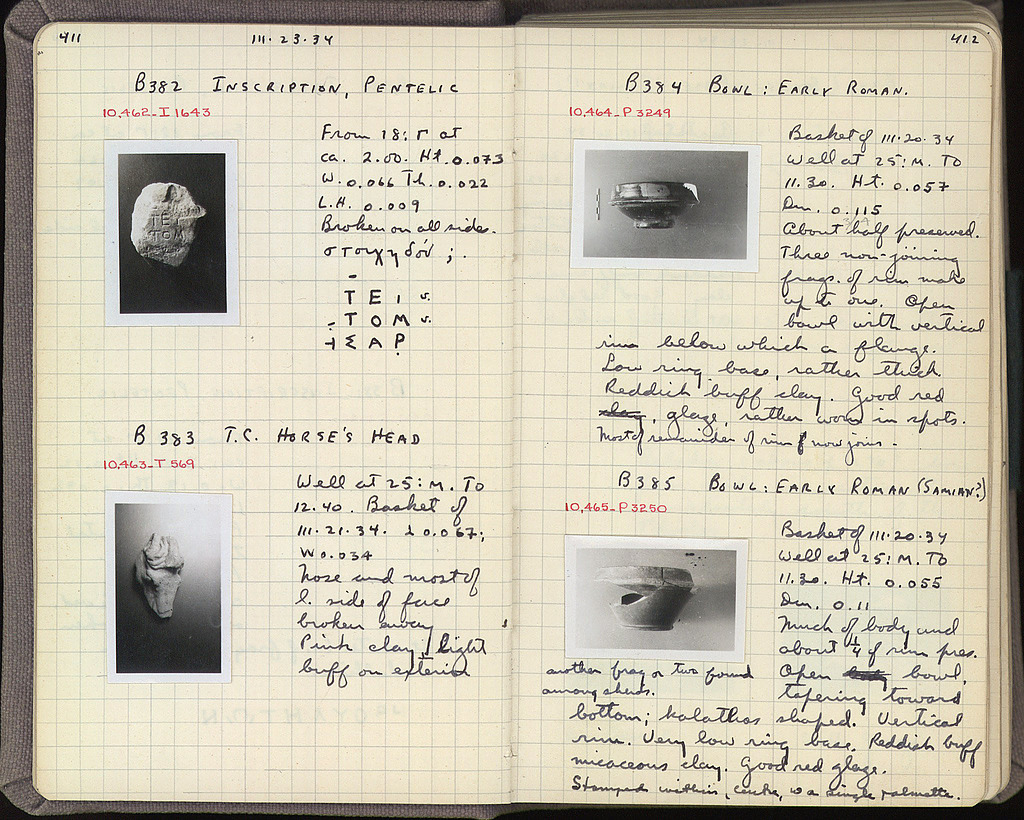 411
III·23·34
B382 INSCRIPTION, PENTELIC
10,462-I 1643
From 18:Γ at
ca. 2.00. Ht. 0.073
W. 0.066 Th. 0.022
L.H. 0.009
Broken on all sides.
στοιχηδόν;
ΤΕΙ v.
ΤΟΜ v.
ΣΑΡ
B 383 T.C. HORSE'S HEAD
10,463-T 569
Well at 25:M. To
12.40. Basket of
III·21·34. L 0.067;
W 0.034
Nose and most of
l. side of face
broken away
Pink clay, light
buff on exterior
412
B384 BOWL: EARLY ROMAN.
10,464-P 3249
Basket of III·20·34
Well at 25:M. To
11.30. Ht. 0.057
Dm. 0.115
About half preserved.
Three non-joining
frags. of rim make
up to one. Open
bowl with vertical
rim below which a flange.
Low ring base, rather thick
Reddish buff clay. Good red
clay, glaze, rather worn in spots.
Most of remainder of rim now joins.
B385 BOWL: EARLY ROMAN (SAMIAN?)
10,465-P 3250
Basket of III·20·34
Well at 25:M. To
11.30. Ht. 0.055
Dm. 0.11
Much of body and
about 1/4 of rim pres.
another frag or two found
among sherds.
Open bowl,
tapering toward
bottom; kalathos shaped. Vertical
rim. Very low ring base. Reddish buff
micaceous clay. Good red glaze.
Stamped within, centre, w a single palmette.